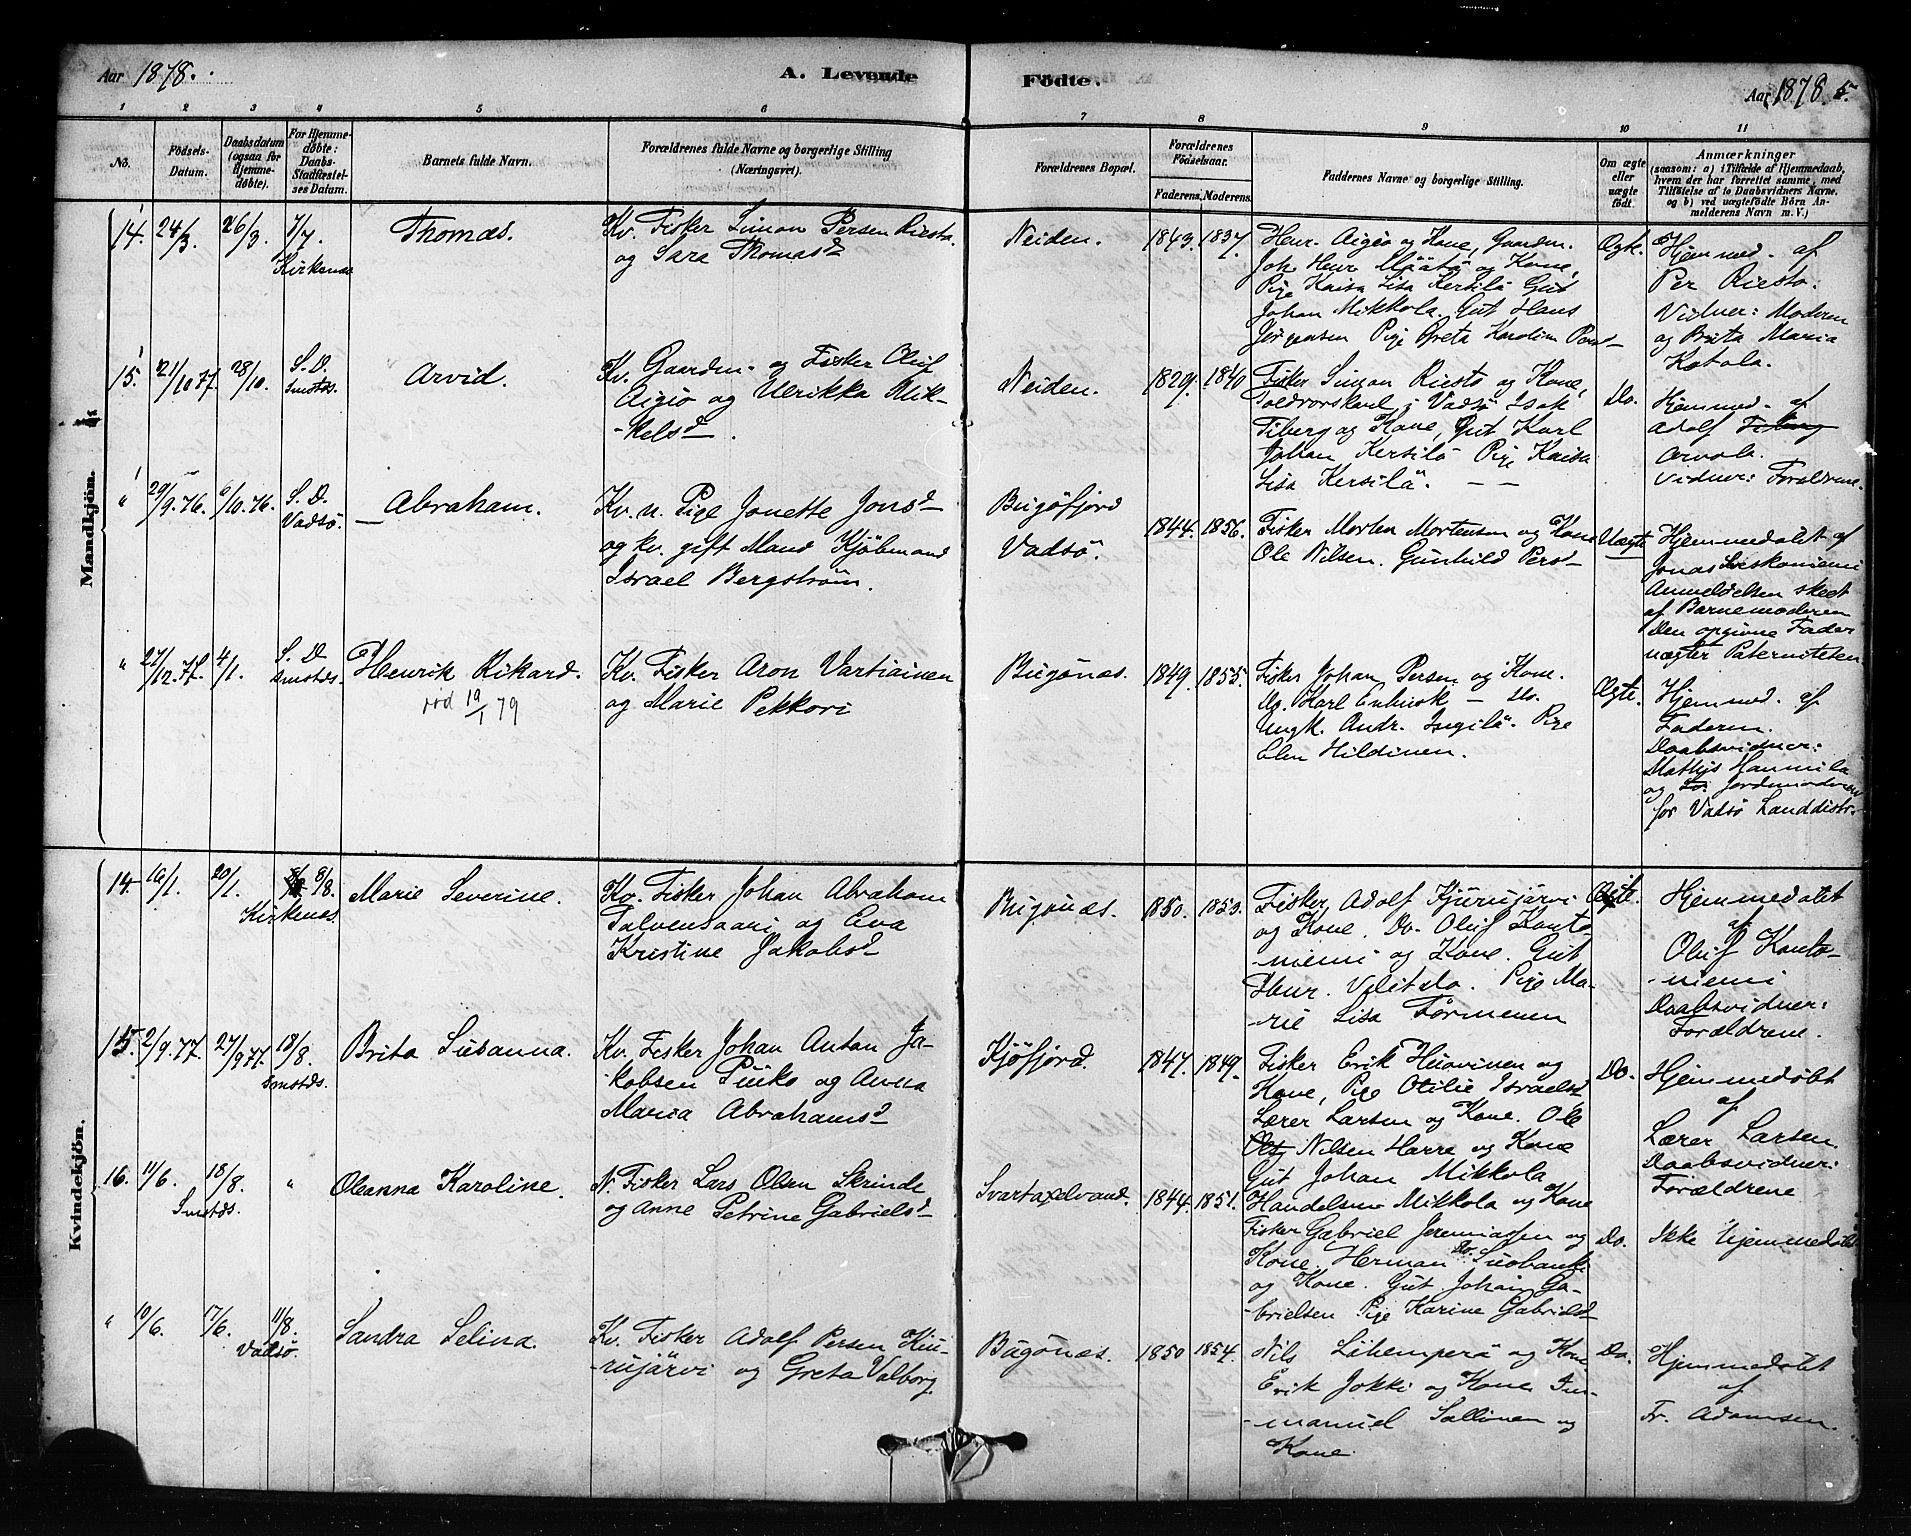 Aar 1878.
A. Levende Födte.
Aar 1878. 5.
1 2 3 4 5 6 7 8 9 10 11
No.
Födsels-
Datum.
Daabsdatum
(ogsaa for
Hjemme-
døbte).
For Hjemme-
døbte:
Daabs-
Stadfæstel-
ses Datum.
Barnets fulde Navn.
Forældrenes fulde Navne og borgerlige Stilling
(Næringsvei).
Forældrenes Bopæl.
Forældrenes
Fødselsaar.
Faderens. Moderens.
Faddernes Navne og borgerlige Stilling.
Om ægte
eller
uægte
født.
Anmærkninger
(saasom: a) i Tilfælde af Hjemmedaab,
hvem der har forrettet samme, med
Tilføielse af to Daabsvidners Navne,
og b) ved uægtefødte Børn An-
melderens Navn m. V.)
Mandkjön.
14. 24/3 26/3 7/7 Kirkenæs
Thomas.
Kv. Fisker Simon Persen Riesto
og Sara Thomasd
Neiden.
1843. 1837.
Henr. Aigiø og Kone, Gaardm.
Joh. Henr. Määtö og Kone,
Pige Kaisa Lisa Kersilö Gut
Johan Mikkola. Gut Hans
Jörgensen Pige Greta Karolin Persd
Ægte.
Hjemmed. af
Per Riesto.
Vidner: Moderen
og Brita Maria
Kotola.
15. 21/10 77. 28/10. S. D. Smstds.
Arvid.
Kv. Gaardm. og Fisker Oluf
Aigiø og Ulrikka Mik-
-kelsd.
Neiden.
1829. 1840
Fisker Simon Riesto og Kone,
Toldrorskarl i Vadsö Isak
Fiberg og Kone, Gut Karl
Johan Kersilö Pige Kaisa
Lisa Kersilö.
Do.
Hjemmed. af
Adolf
Arvola.
Vidner: Forældrene.
" 29/9.76. 6/10.76. S. D. Vadsö.
Abraham.
Kv. u. Pige Jonette Jonsd
og kv. gift Mand Kjöbmand
Israel Bergström.
Bugöfjord
Vadsö.
1844. 1856.
Fisker Morten Mortensen og Kone
Ole Nilsen. Gunhild Persd
Uægte
Hjemmedøbt af
Jonas
Anmeldelsen skeet
af Barnemoderen
Den opgivne Fader
nægter Paterniteten.
" 27/12.77. 4/1. S. D. Smstds.
Henrik Rikard.
död 19/1 79
Kv. Fisker Aron Vartiainen
og Marie Pekkori
Bugönæs.
1849. 1855.
Fisker Johan Persen og Kone.
Do. Karl - Do.
Ungk. Andr. Ingilö. Pige
Elen Hildinen.
Ægte.
Hjemmed. af
Faderen.
Daabsvidner:
Mathis Hannila
og Jordemoderen
for Vadsö Landdistr.
Kvindekjön.
14. 16/1. 20/1. 8/8. Kirkenæs.
Marie Severine.
Kv. Fisker Johan Abraham
Talvensaari og Eva
Kristine Jakobsd
Bugönæs.
1850. 1853.
Fisker Adolf Kjurujärvi
og Kone. Do. Oluf Kanto-
-niemi og Kone. Gut
Henr. Pige Ma-
-rie Lisa Törmenen
Ægte.
Hjemmedøbt
af
Oluf Kanto-
-niemi
Daabsvidner:
Forældrene.
15. 2/9.77. 27/9 77. 18/8. Smstds.
Brita Susanna.
Kv. Fisker Johan Antan Ja-
-kobsen Puiko og Anna
Maria Abrahamsd
Kjöfjord.
1847. 1849.
Fisker Erik Huovinen og
Kone, Pige Otilie Israelsd
Lærer Larsen og Kone. Ole
Nilsen Harre og Kone
Gut Johan Mikkola
Do.
Hjemmedøbt
af
Lærer Larsen
Daabsvidner:
Forældrene
16. 11/6. 18/8. Smstds. "
Oleanna Karoline.
N. Fisker Lars Olsen Skrinde
og Anne Petrine Gabrielsd
Svartaxelvand.
1844. 1851.
Handelsm. Mikkola og Kone
Fisker Gabriel Jeremiassen og
Kone. Do. Herman Suobanki
og Kone. Gut Johan Ga-
-brielsen Pige Karine Gabrielsd
Do.
Ikke hjemmedøbt
" 10/6. 17/6. 11/8. Vadsö.
Sandra Selina.
Kv. Fisker Adolf Persen Kju-
-rujärvi og Greta Valborg
Bugönæs.
1850 1854.
Nils og Kone
Erik Jokki og Kone Im-
-manuel Sallinen og
Kone.
Do.
Hjemmedøbt
af
Fr. Adamsen.